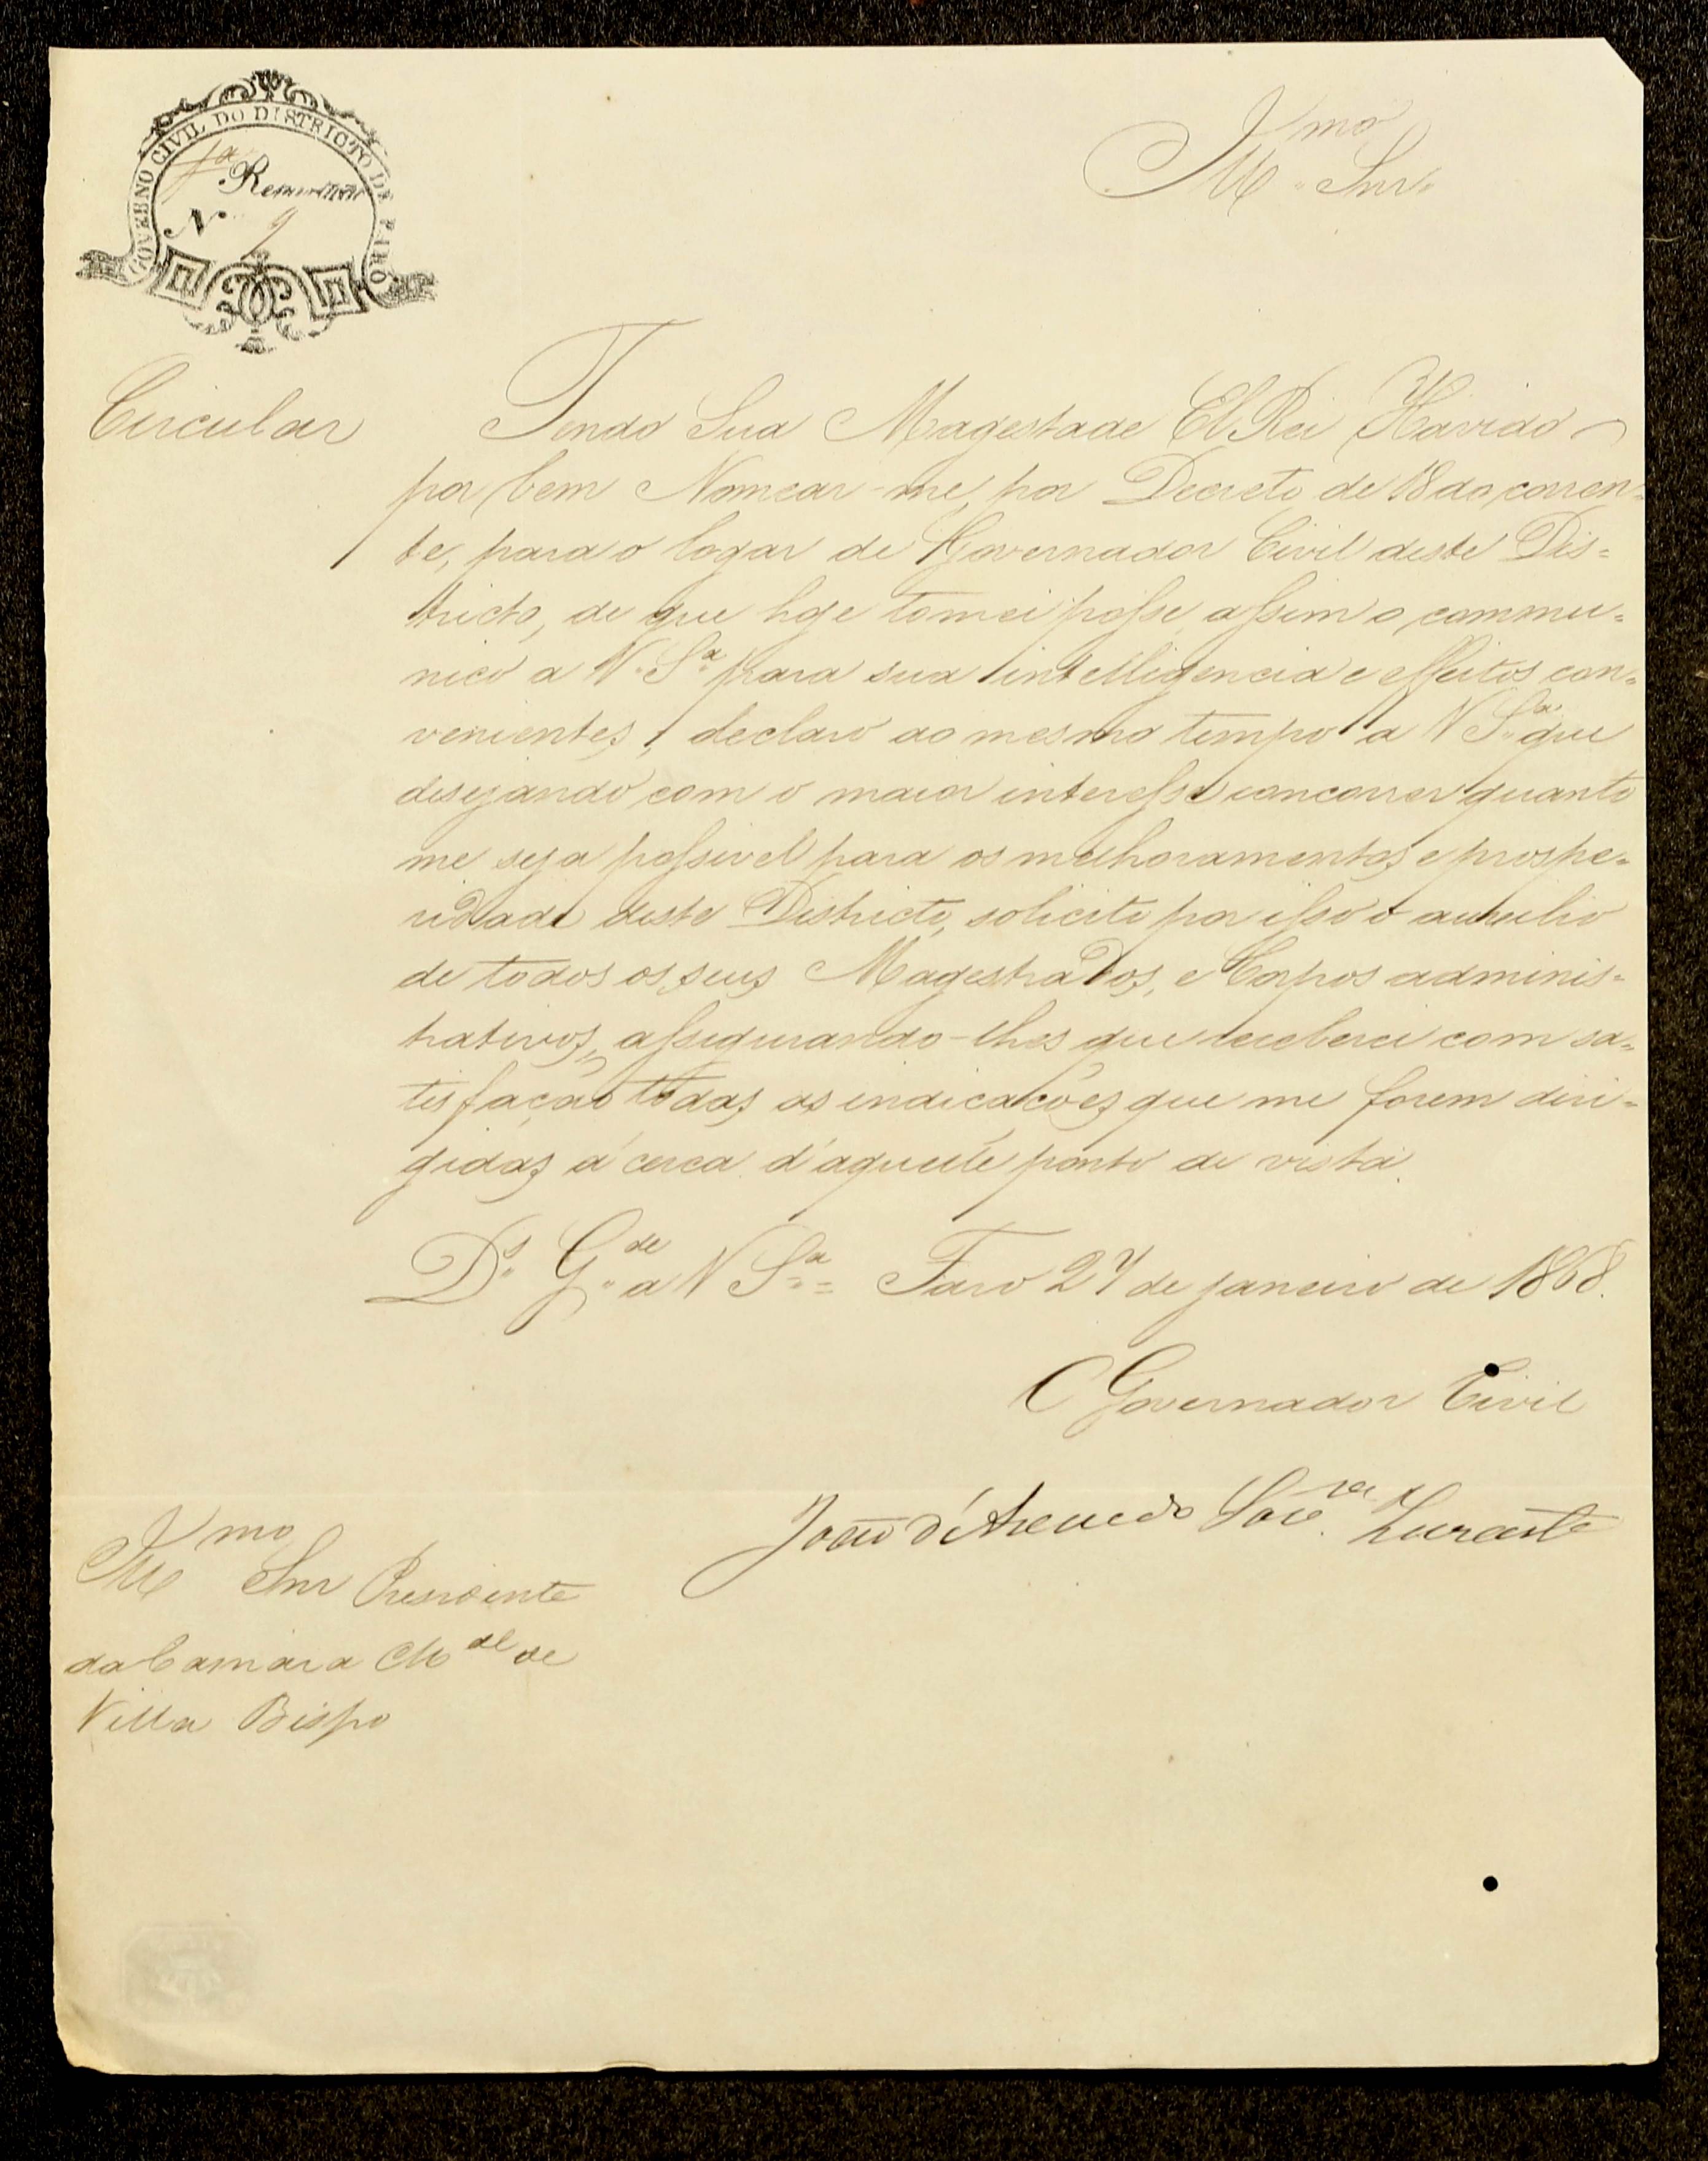 GOVERNO CIVIL DO DISTRICTO DE FARO
1ª Repartição
N 2
Illmo Snr
Circular
Tendo Sua Magestade El Rei Havido
por bem Nomear-me, por Decreto de 18 do corren-
te, para o logar de Governador Civil deste Dis=
tricto, de que hoje tomei posse assim o commu=
nico a V. Sª para sua intelligencia e effeitos con=
venientes, declaro ao mesmo tempo a V Sª que
desejando com o maior interesse concorrer quanto
me seja possivel para os melhoramentos e prospe=
ridade deste Districto, solicito por isso o auxilio
de todos os seus Magestrados, e Corpos adminis=
trativos, assegurando-lhes que receberei com sa=
tisfação todas as indicações que me forem diri=
gidas á cerca d'aquelle ponto de vista.
Ds Gde a V Sª = Faro 27 de janeiro de 1868.
O Governador Civil
João d'Azevedo
Illmo Snr Presidente
da Camara Mal de
Villa Bispo